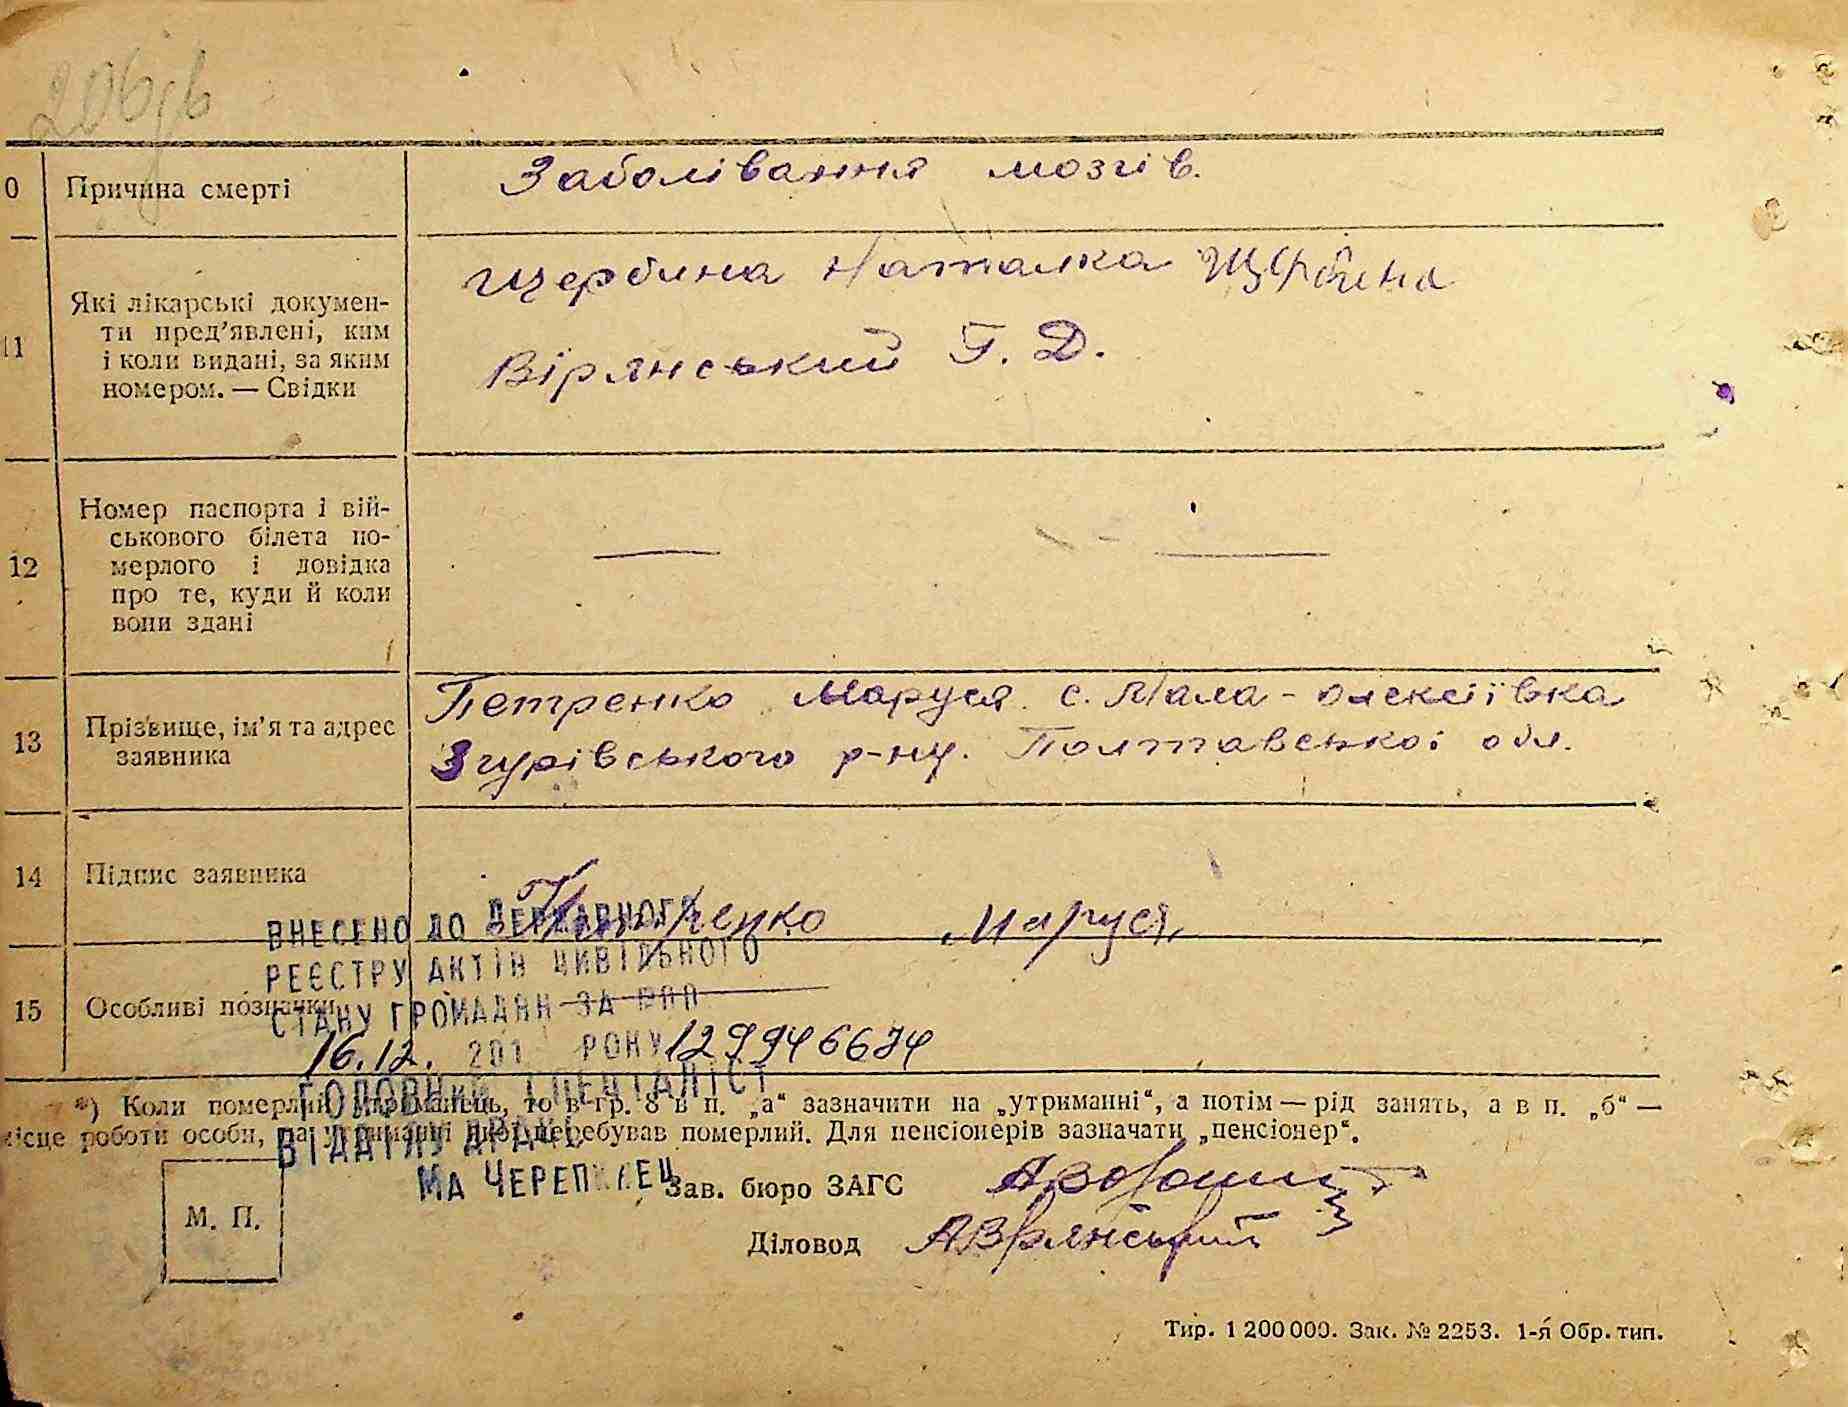 0 Причина смерті Заболівання мозгів.
11 Які лікарські докумен-
ти пред'явлені, ким
і коли видані, за яким
номером. — Свідки
Щербина Наталка Щрбина
Вірянський Г. Д.
12 Номер паспорта і вій-
ськового білета по-
мерлого і довідка
про те, куди й коли
вони здані
— —
13 Прізвище, ім'я та адрес
заявника
Петренко Маруся с. Мала-Олексіївка
Згурівського р-ну. Полтавської обл.
14 Підпис заявника
Маруся
ВНЕСЕНО ДО ДЕРЖАВНОГО
РЕЄСТРУ АКТІВ ЦИВІЛЬНОГО
15 Особливі позначки
СТАНУ ГРОМАДЯН ЗА
16.12. 201 РОКУ
ГОЛОВНИЙ СПЕЦІАЛІСТ
*) Коли померлий утриманець, то в гр. 8 в п. „а“ зазначити на „утриманні“, а потім — рід занять, а в п. „б“ —
місце роботи особи, на утриманні якої перебував померлий. Для пенсіонерів зазначати „пенсіонер“.
ВІДДІЛУ ДРАЦС
МА ЧЕРЕПИНЕЦЬ
Зав. бюро ЗАГС
М. П.
Діловод
Тир. 1 200 000. Зак. № 2253. 1-я Обр. тип.